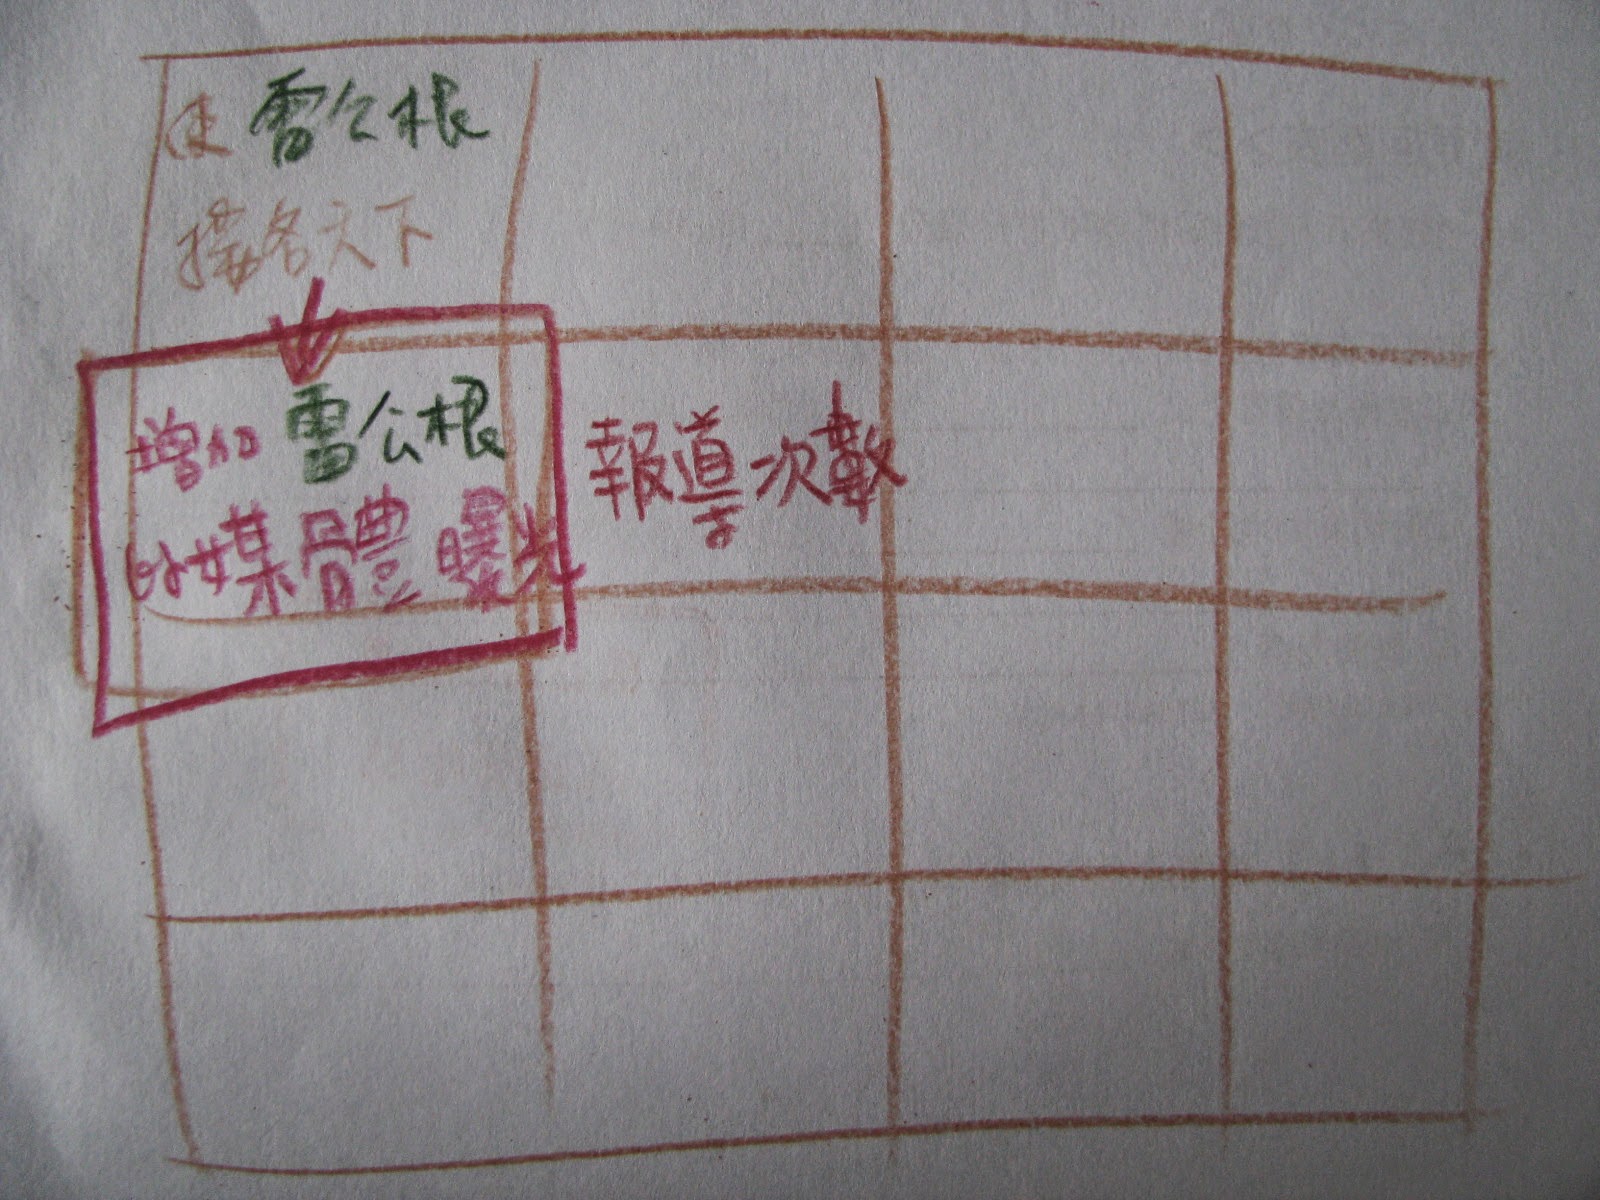 使雷公根
揚名天下
增加雷公根
的媒體曝光
報導次數